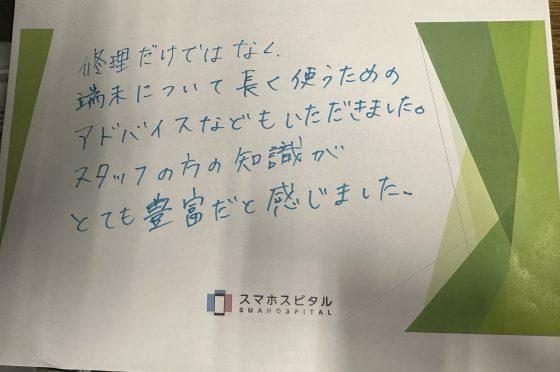 修理だけではなく、
端末について長く使うための
アドバイスなどもいただきました。
スタッフの方の知識が
とても豊富だと感じました。
スマホスピタル
SMAHOSPITAL